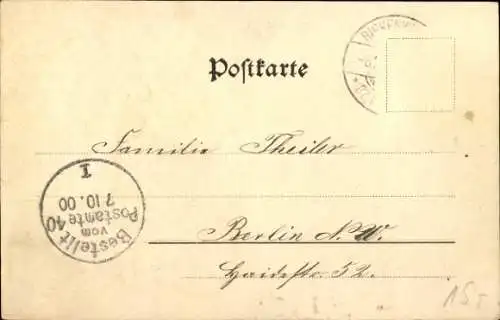 Postkarte
Familie Theiler
Berlin N. W.
Haidestr. 52.
Bestellt
vom
Postamte 40
7 10. 00
I
15